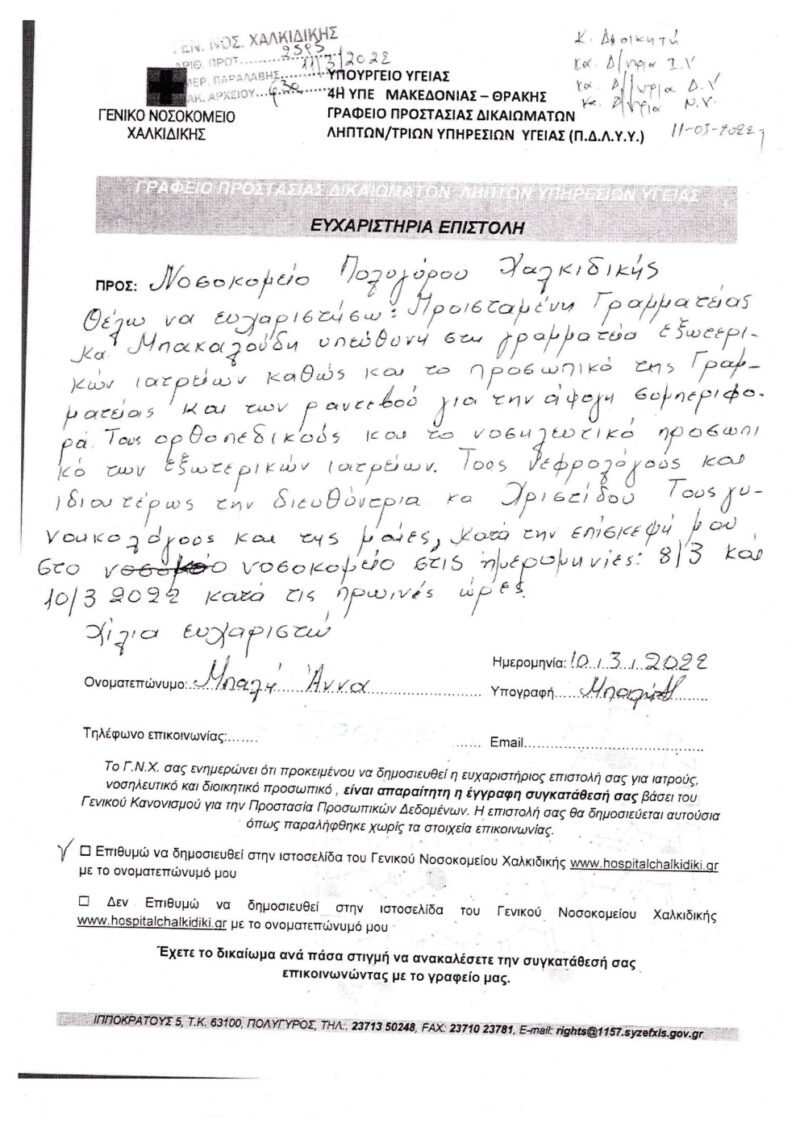 ΓΕΝ. ΝΟΣ. ΧΑΛΚΙΔΙΚΗΣ
ΑΡΙΘ. ΠΡΩΤ. 2595
ΗΜΕΡ. ΠΑΡΑΛΑΒΗΣ 11/3/2022
ΦΑΚ. ΑΡΧΕΙΟΥ
Κ. Διοικητή
κα Δ/ντρια Ι.Υ
κα Δ/ντρια Δ.Υ
κα Δ/ντρια Ν.Υ.
11-03-2022
ΓΕΝΙΚΟ ΝΟΣΟΚΟΜΕΙΟ
ΧΑΛΚΙΔΙΚΗΣ
ΥΠΟΥΡΓΕΙΟ ΥΓΕΙΑΣ
4Η ΥΠΕ ΜΑΚΕΔΟΝΙΑΣ – ΘΡΑΚΗΣ
ΓΡΑΦΕΙΟ ΠΡΟΣΤΑΣΙΑΣ ΔΙΚΑΙΩΜΑΤΩΝ
ΛΗΠΤΩΝ/ΤΡΙΩΝ ΥΠΗΡΕΣΙΩΝ ΥΓΕΙΑΣ (Π.Δ.Λ.Υ.Υ.)
ΓΡΑΦΕΙΟ ΠΡΟΣΤΑΣΙΑΣ ΔΙΚΑΙΩΜΑΤΩΝ ΛΗΠΤΩΝ ΥΠΗΡΕΣΙΩΝ ΥΓΕΙΑΣ
ΕΥΧΑΡΙΣΤΗΡΙΑ ΕΠΙΣΤΟΛΗ
ΠΡΟΣ: Νοσοκομείο Πολυγύρου Χαλκιδικής
Θέλω να ευχαριστήσω: Προισταμένη Γραμματείας
κα Μπακαλούδη υπεύθυνη στη γραμματεία εξωτερι-
κών ιατρείων καθώς και το προσωπικό της Γραμ-
ματείας και των ραντεβού για την άψογη σομπεριφο-
ρά. Τους ορθοπεδικούς και το νοσηλευτικό προσωπι-
κό των εξωτερικών ιατρείων. Τους νεφρολόγους και
ιδιαιτέρως την διευθύντρια κα Χριστίδου Τους γυ-
ναικολόγους και της μαίες, κατά την επίσκεψή μου
στο νοσοκομείο στις ημερομηνίες: 8/3 και
10/3 2022 κατά τις πρωινές ώρες.
Χίλια ευχαριστώ
Ημερομηνία: 10 / 3 / 2022
Ονοματεπώνυμο: Μπαλή Άννα Υπογραφή
Τηλέφωνο επικοινωνίας: Email
Το Γ.Ν.Χ. σας ενημερώνει ότι προκειμένου να δημοσιευθεί η ευχαριστήριος επιστολή σας για ιατρούς,
νοσηλευτικό και διοικητικό προσωπικό , είναι απαραίτητη η έγγραφη συγκατάθεσή σας βάσει του
Γενικού Κανονισμού για την Προστασία Προσωπικών Δεδομένων. Η επιστολή σας θα δημοσιεύεται αυτούσια
όπως παραλήφθηκε χωρίς τα στοιχεία επικοινωνίας.
☐ Επιθυμώ να δημοσιευθεί στην ιστοσελίδα του Γενικού Νοσοκομείου Χαλκιδικής www.hospitalchalkidiki.gr
με το ονοματεπώνυμό μου
☐ Δεν Επιθυμώ να δημοσιευθεί στην ιστοσελίδα του Γενικού Νοσοκομείου Χαλκιδικής
www.hospitalchalkidiki.gr με το ονοματεπώνυμό μου
Έχετε το δικαίωμα ανά πάσα στιγμή να ανακαλέσετε την συγκατάθεσή σας
επικοινωνώντας με το γραφείο μας.
ΙΠΠΟΚΡΑΤΟΥΣ 5, Τ.Κ. 63100, ΠΟΛΥΓΥΡΟΣ, ΤΗΛ.: 23713 50248, FAX: 23710 23781, E-mail: rights@1157.syzefxis.gov.gr